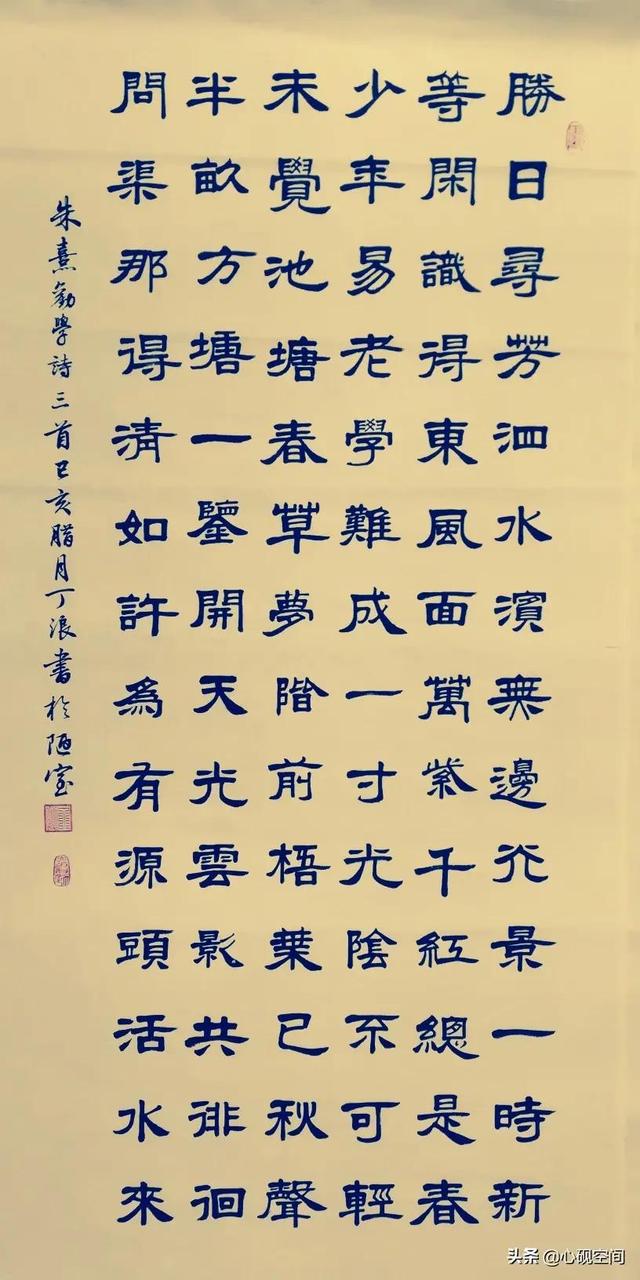 勝日尋芳泗水濱無邊光景一時新
等閑識得東風面萬紫千紅總是春
少年易老學難成一寸光陰不可輕
未覺池塘春草夢階前梧葉已秋聲
半畝方塘一鑒開天光雲影共徘徊
問渠那得清如許為有源頭活水來
朱熹勸學詩三首己亥腊月丁浪書於陋室
头条 @心砚空间